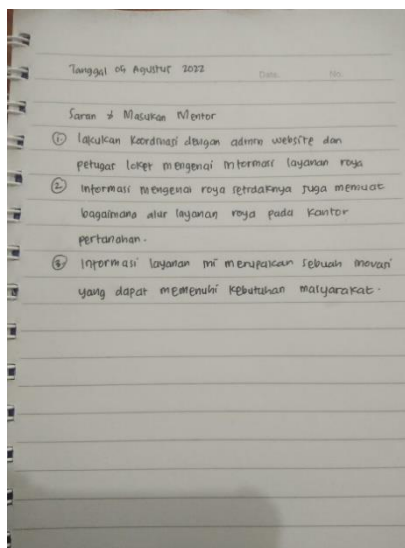 Tanggal 04 Agustus 2022
Date. No.
Saran & Masukan Mentor
1 lakukan koordinasi dengan admin website dan
petugas loket mengenai informasi layanan roya
2 Informasi mengenai roya setidaknya juga memuat
bagaimana alur layanan roya pada kantor
pertanahan.
3 Informasi layanan ini merupakan sebuah inovasi
yang dapat memenuhi kebutuhan masyarakat.